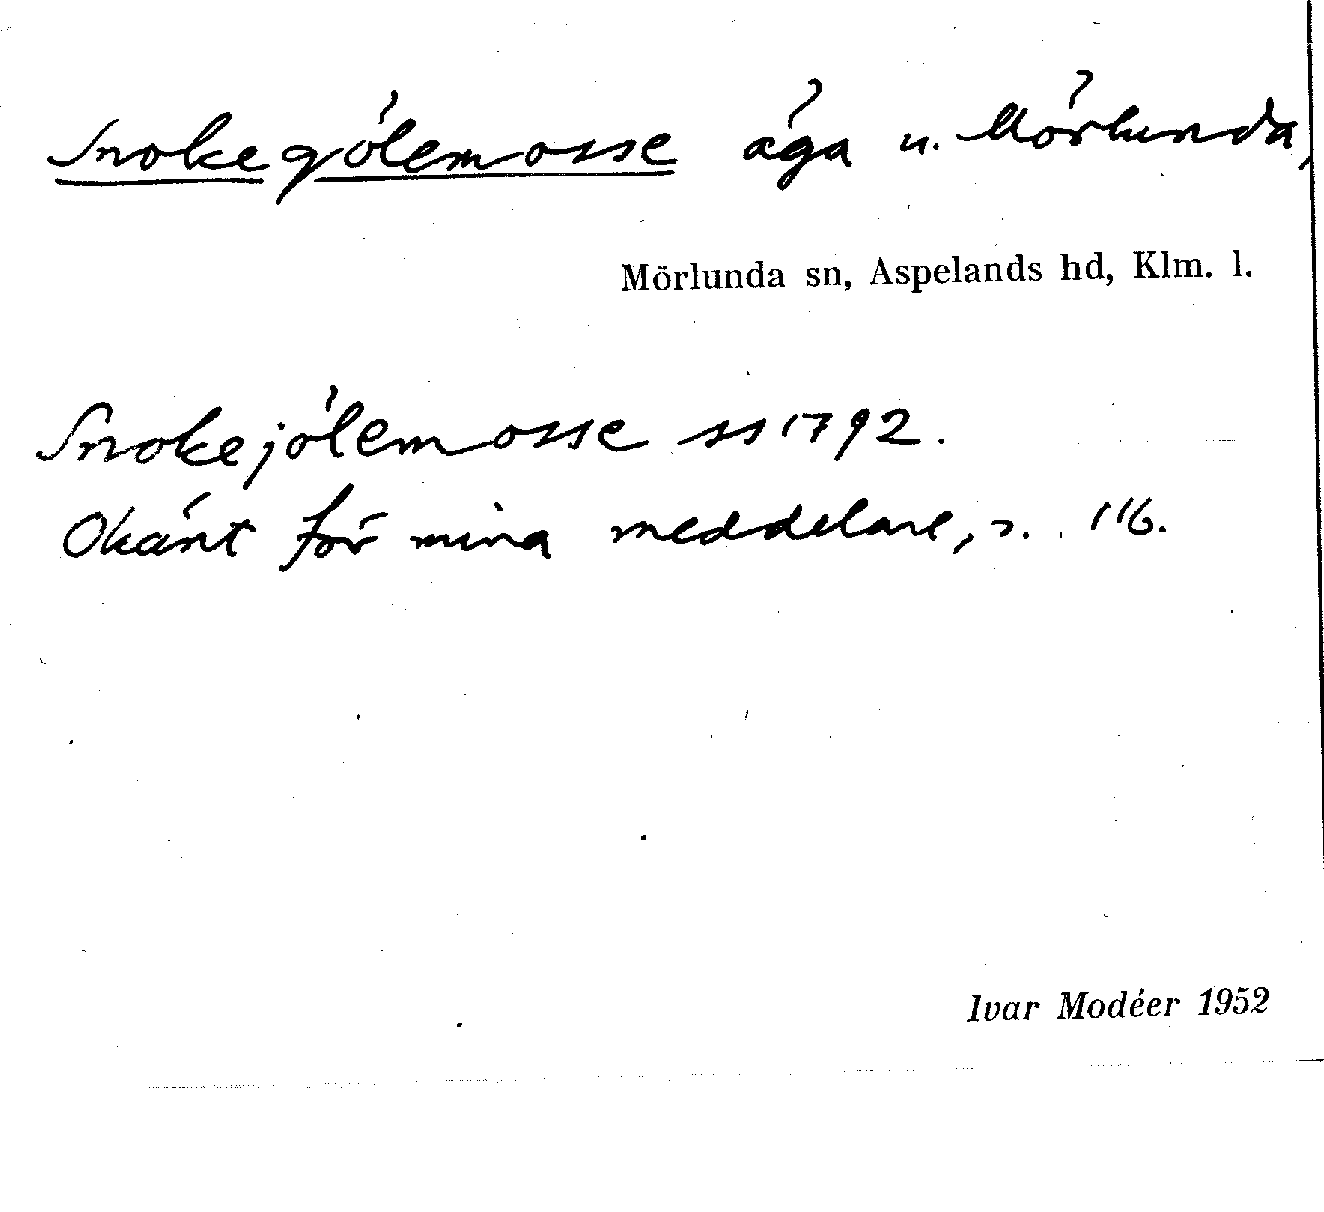 Snokegölemosse äga u. Mörlunda,
Mörlunda sn, Aspelands hd, Klm. l.
Snokejölemosse ss 1792.
Okänt för mina meddelare, s. 116.
Ivar Modéer 1952